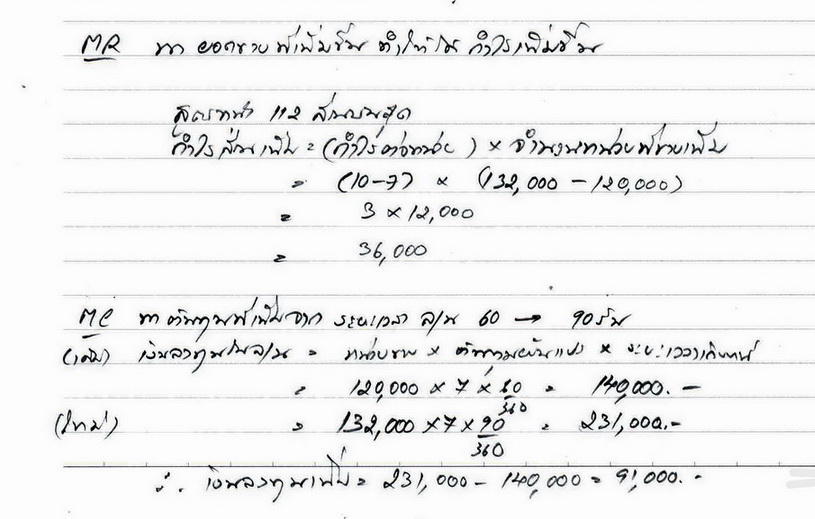 MR หา ยอดขายที่เพิ่มขึ้น ทำให้ได้ กำไรเพิ่มขึ้น
สูตรหน้า 112 ส่วนบนสุด
กำไรส่วนเพิ่ม = (กำไรต่อหน่วย) × จำนวนหน่วยที่ขายเพิ่ม
= (10-7) × (132,000 - 120,000)
= 3 × 12,000
= 36,000
MC หาต้นทุนที่เพิ่มจาก ระยะเวลา ล/น 60 → 90 วัน
(เดิม) เงินลงทุนในล/น = หน่วยขาย × ต้นทุนผันแปร × ระยะเวลาเก็บหนี้
= 120,000 × 7 × 60/360 = 140,000.-
(ใหม่) = 132,000 × 7 × 90/360 = 231,000.-
∴ เงินลงทุนเพิ่ม = 231,000 - 140,000 = 91,000.-